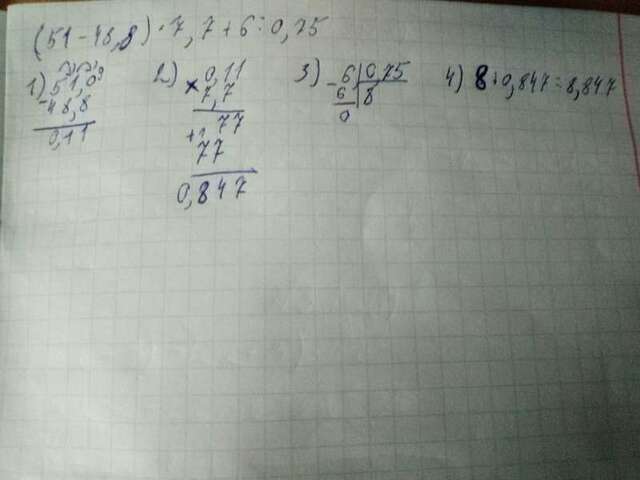 (51-48,8)·7,7+6:0,75
1) 51,0
-48,8
0,11
2) 0,11
×7,7
+ 77
77
0,847
3) -6|0,75
6|8
0
4) 8+0,847=8,847